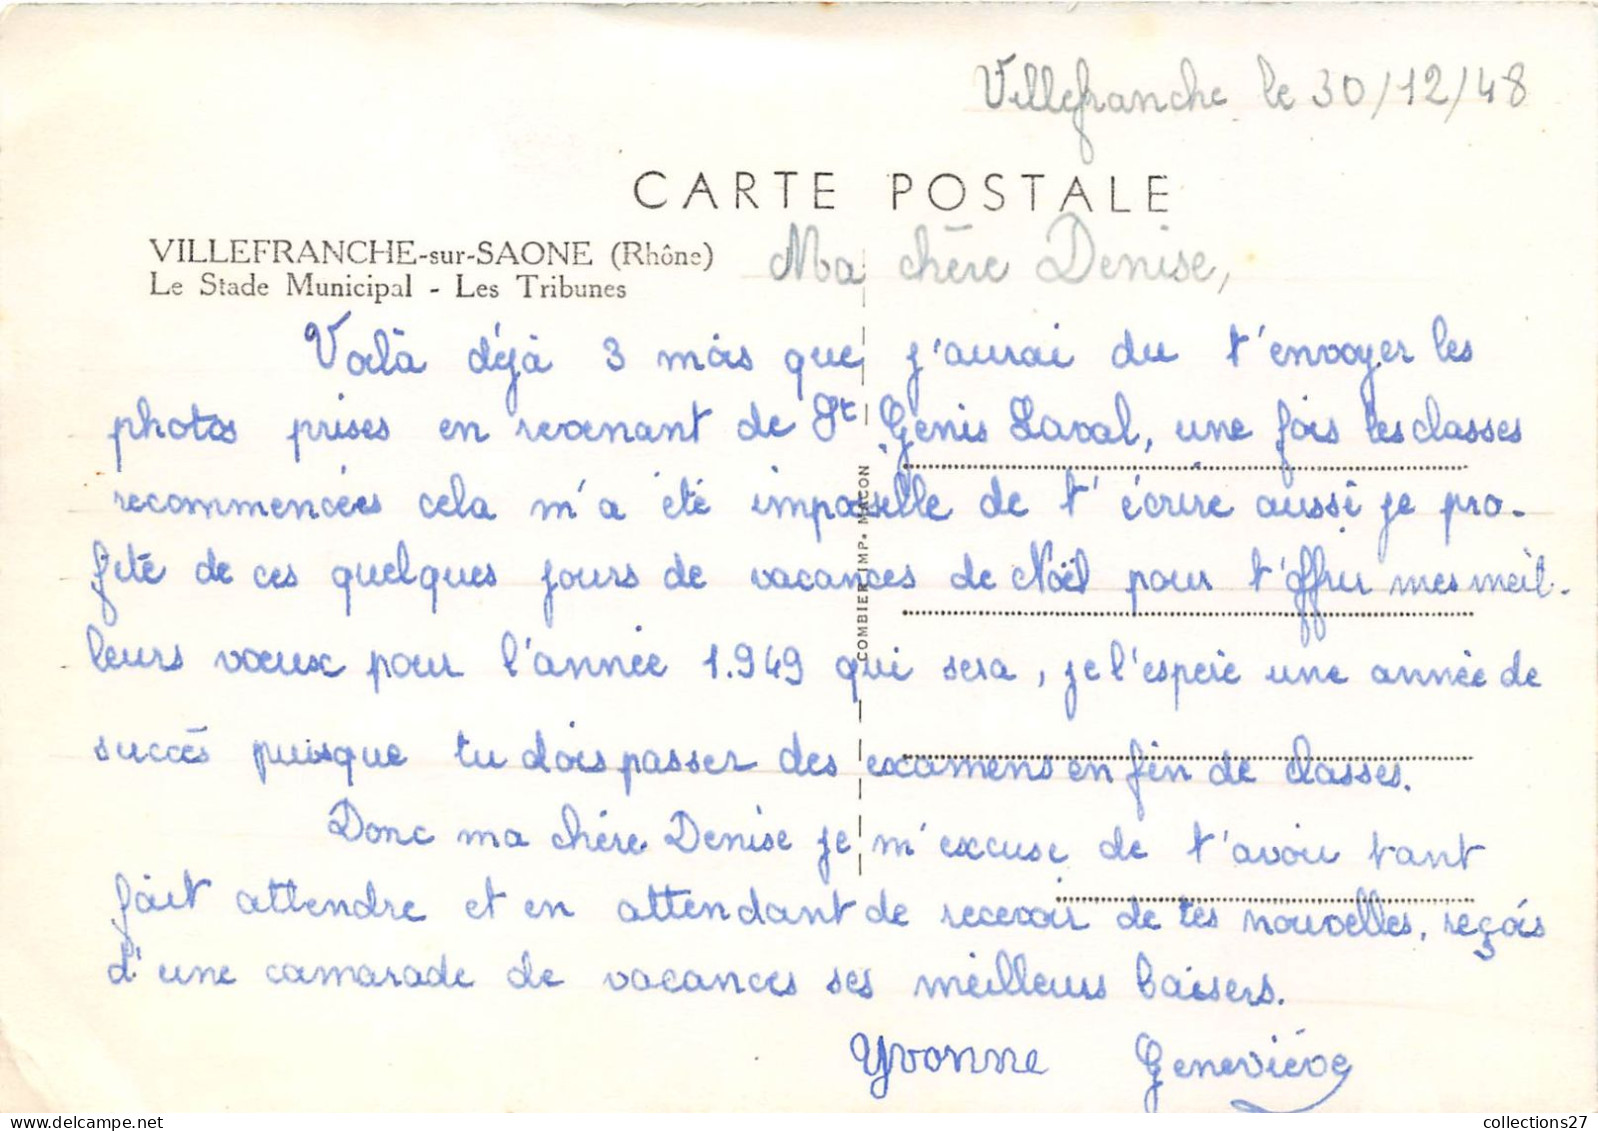 Villefranche le 30/12/48
CARTE POSTALE
VILLEFRANCHE-sur-SAONE (Rhône)
Le Stade Municipal - Les Tribunes
Ma chère Denise,
Voilà déjà 3 mois que j'aurai du t'envoyer les
photos prises en revenant de St Genis Laval, une fois les classes
recommencées cela m'a été impossible de t'écrire aussi je pro-
fite de ces quelques jours de vacances de Noël pour t'offrir mes meil-
leurs voeux pour l'année 1.949 qui sera, je l'espère une année de
succès puisque tu dois passer des examens en fin de classes.
Donc ma chère Denise je m'excuse de t'avoir tant
fait attendre et en attendant de recevoir de tes nouvelles, reçois
d'une camarade de vacances ses meilleurs baisers.
Yvonne Geneviève
COMBIER IMP. MACON
collections27